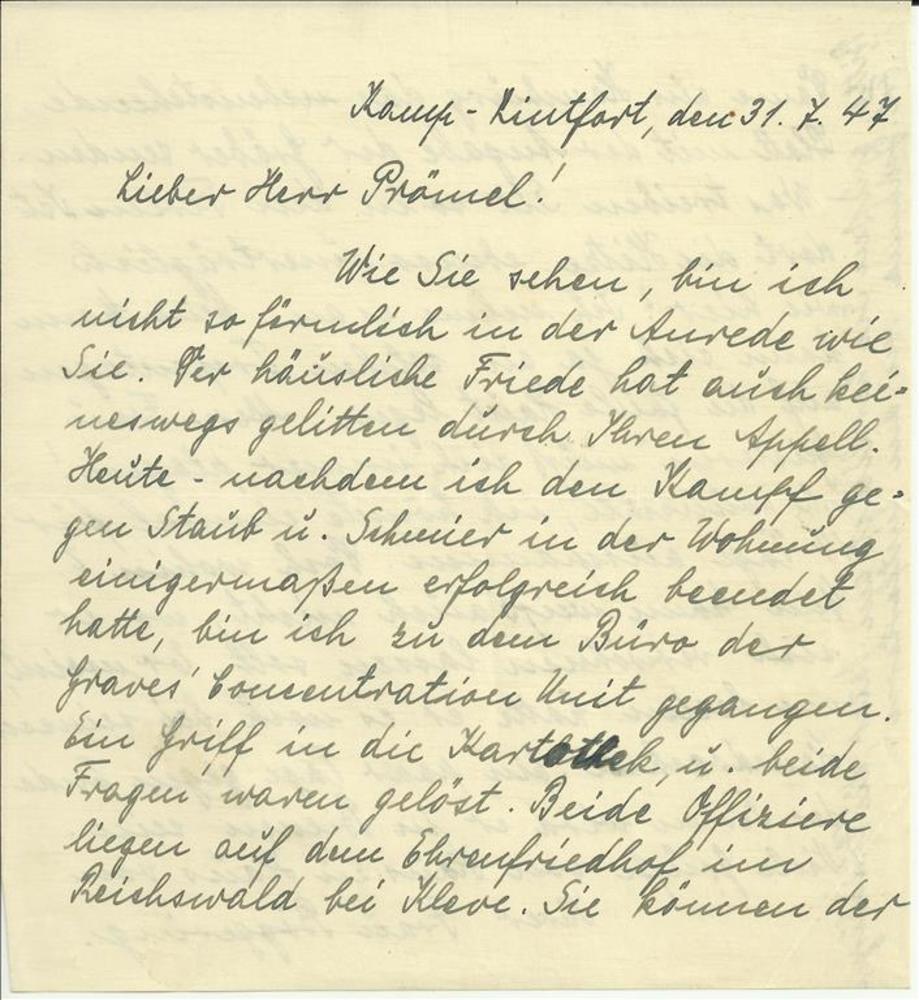 Kamp-Lintfort, den 31. 7. 47
Lieber Herr Prömel!
Wie Sie sehen, bin ich
nicht so förmlich in der Anrede wie
Sie. Der häusliche Friede hat auch kei=
neswegs gelitten durch Ihren Appell.
Heute - nachdem ich den Kampf ge=
gen Staub u. Schmier in der Wohnung
einigermaßen erfolgreich beendet
hatte, bin ich zu dem Büro der
Graves' Concentration Unit gegangen.
Ein Griff in die Kartothek, u. beide
Fragen waren gelöst. Beide Offiziere
liegen auf dem Ehrenfriedhof im
Reichswald bei Kleve. Sie können der